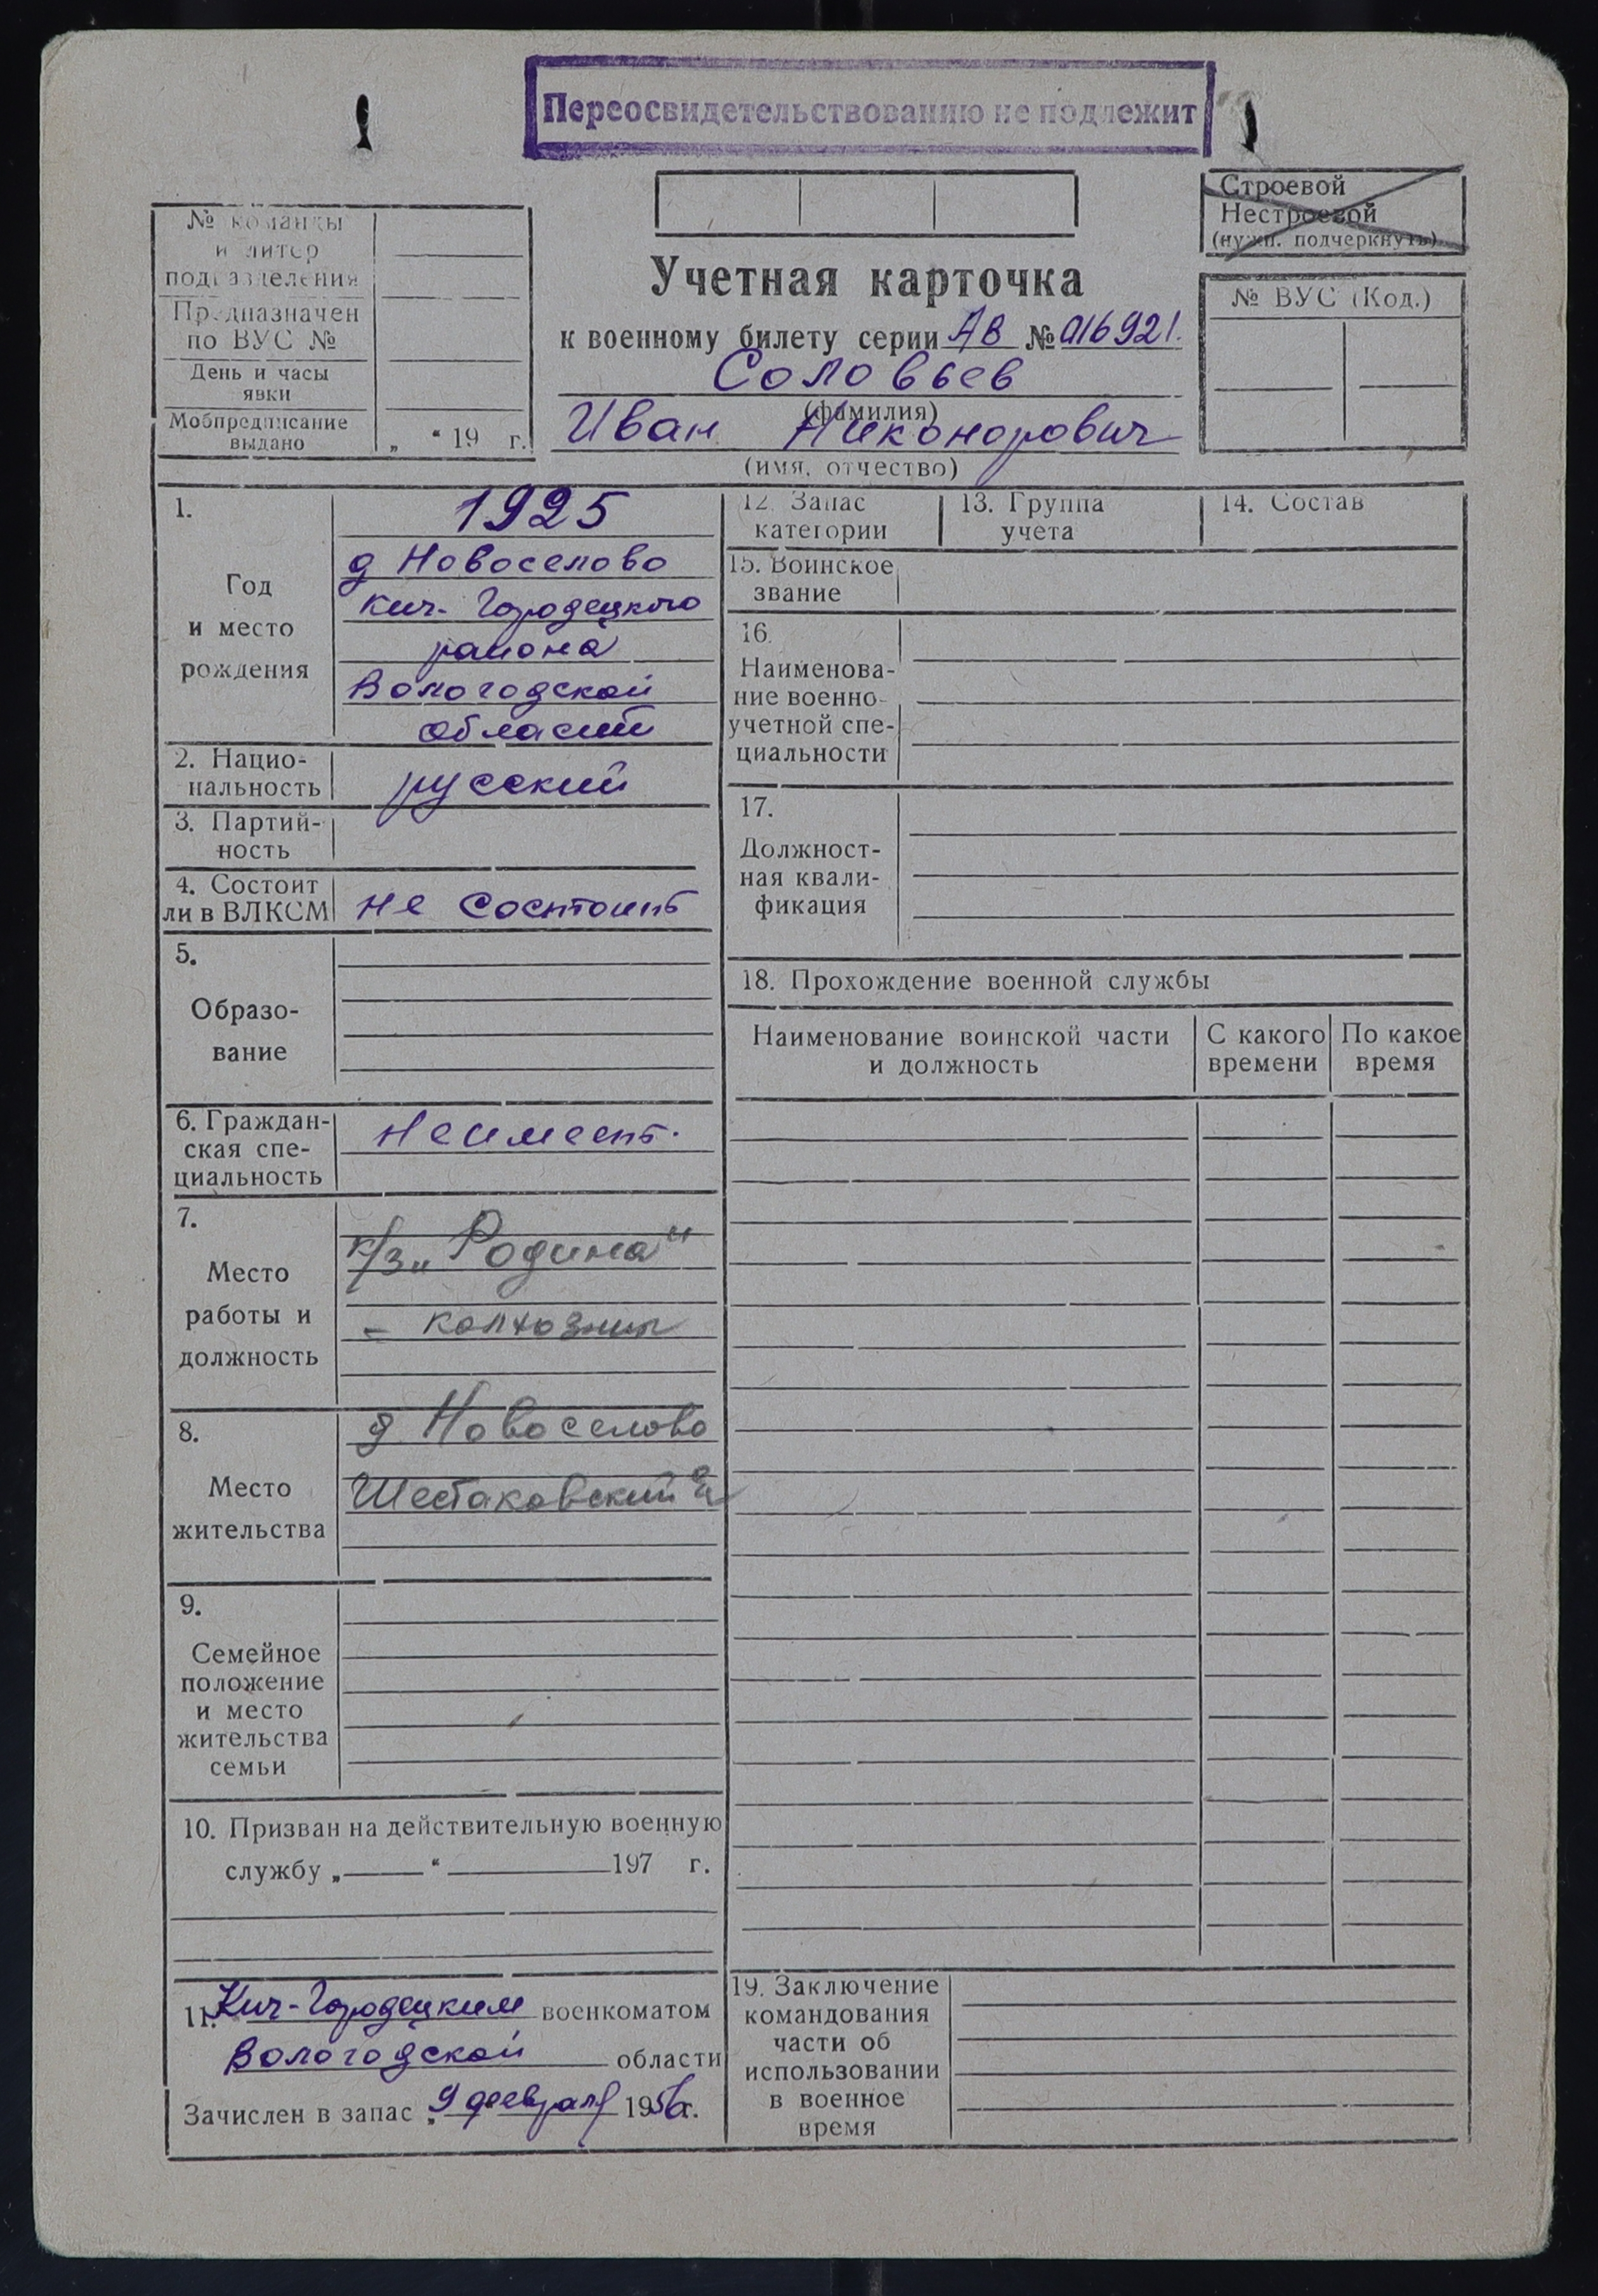 Переосвидетельствованию не подлежит
Строевой
Нестроевой
(нужн. подчеркнуть)
№ команды
и литер
подразделения
Предназначен
по ВУС №
День и часы
явки
Мобпредписание
выдано
„ “ 19 г.
Учетная карточка
к военному билету серии АВ № 016921.
Соловьев
(фамилия)
Иван Никонорович
(имя, отчество)
№ ВУС (Код.)
1.
Год
и место
рождения
1925
д Новоселово
Кич-Городецкого
района
Вологодской
области
2. Нацио-
нальность
русский
3. Партий-
ность
4. Состоит
ли в ВЛКСМ
не состоит
5.
Образо-
вание
6. Граждан-
ская спе-
циальность
Не имеет.
7.
Место
работы и
должность
к/з „Родина“
- колхозник
8.
Место
жительства
д Новоселово
Шестаковский
9.
Семейное
положение
и место
жительства
семьи
10. Призван на действительную военную
службу „ “ 197 г.
11. Кич-Городецким военкоматом
Вологодской области
Зачислен в запас „9 февраля 1956г.
12. Запас
категории
13. Группа
учета
14. Состав
15. Воинское
звание
16.
Наименова-
ние военно-
учетной спе-
циальности
17.
Должност-
ная квали-
фикация
18. Прохождение военной службы
Наименование воинской части
и должность
С какого
времени
По какое
время
19. Заключение
командования
части об
использовании
в военное
время